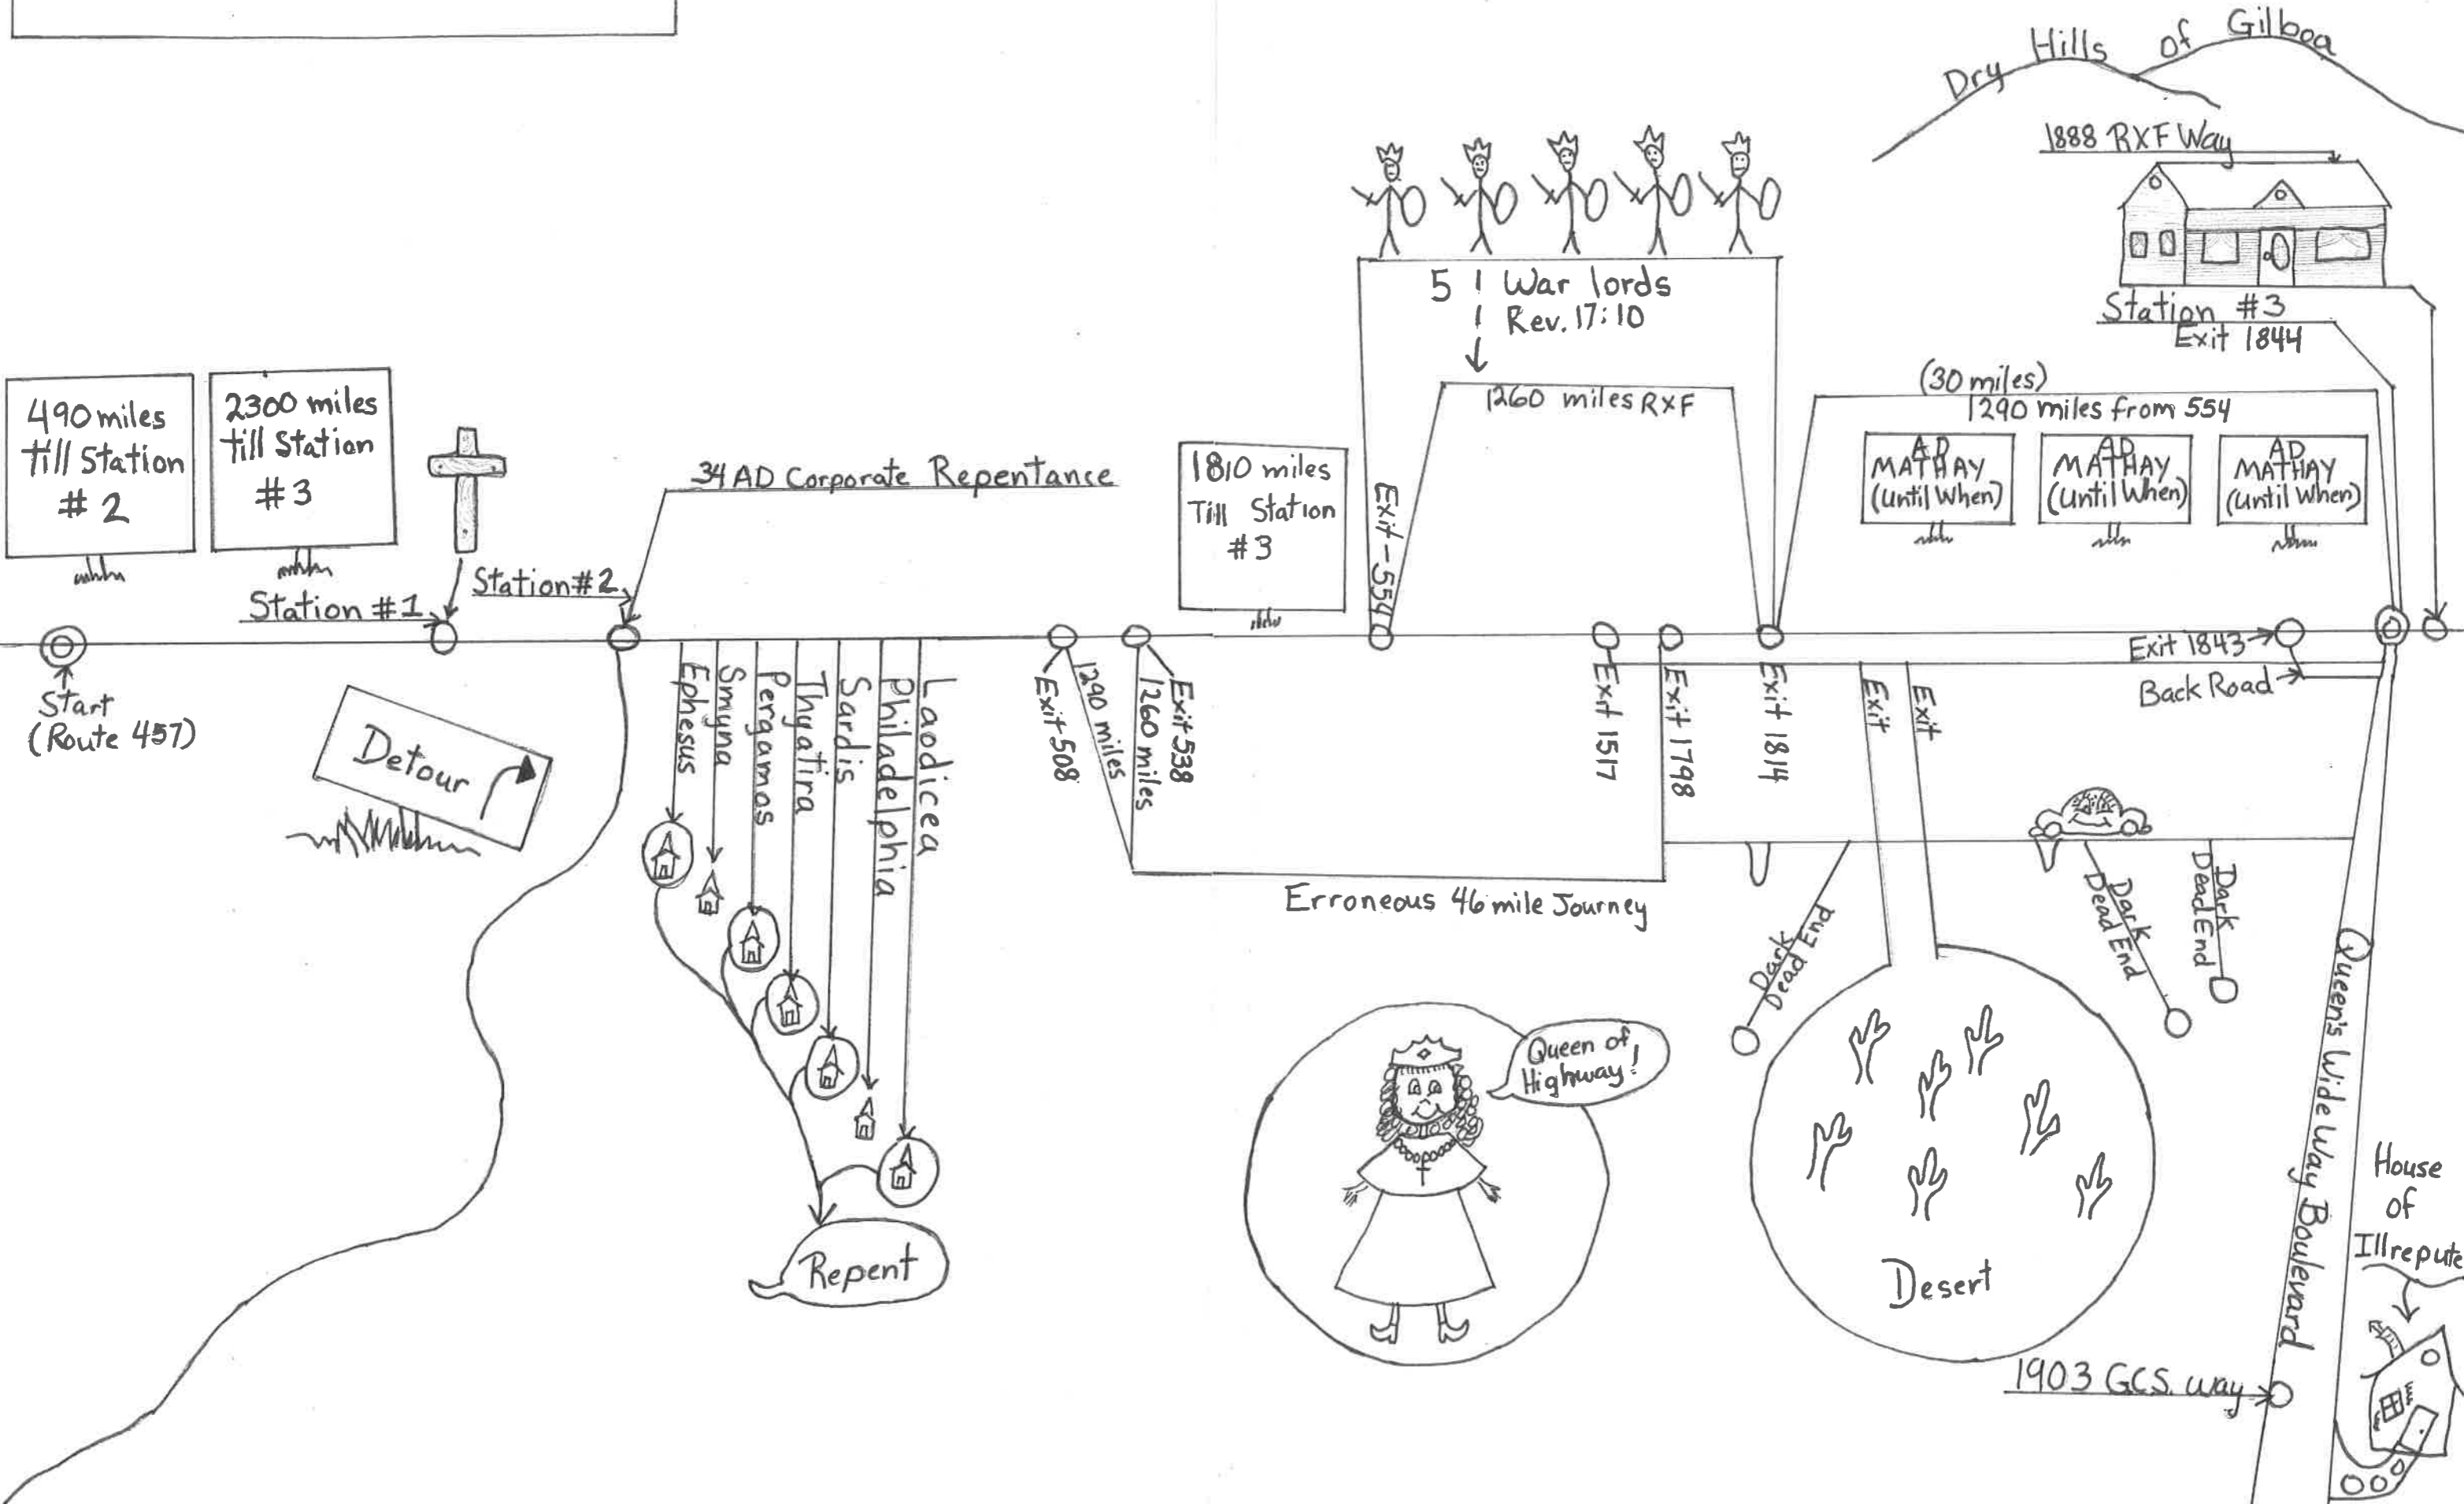 Dry Hills of Gilboa
1888 RXF Way
Station #3
Exit 1844
5 War lords
Rev. 17:10
1260 miles RXF
(30 miles)
1290 miles from 554
AD
MATHAY
(Until When)
AD
MATHAY
(Until When)
AD
MATHAY
(Until When)
490 miles
till Station
# 2
2300 miles
till Station
#3
34 AD Corporate Repentance
1810 miles
Till Station
#3
Exit-554
Station #1
Station #2
Start
(Route 457)
Detour
Ephesus
Smyna
Pergamos
Thyatira
Sardis
Philadelphia
Laodicea
Repent
Exit 508
1290 miles
1260 miles
Exit 538
Exit 1517
Exit 1798
Exit 1814
Exit
Exit
Exit 1843
Back Road
Erroneous 46 mile Journey
Dark
Dead End
Dark
Dead End
Dark
Dead End
Queen of
Highway!
Desert
Queen's Wide Way Boulevard
House
of
Illrepute
1903 GCS. way